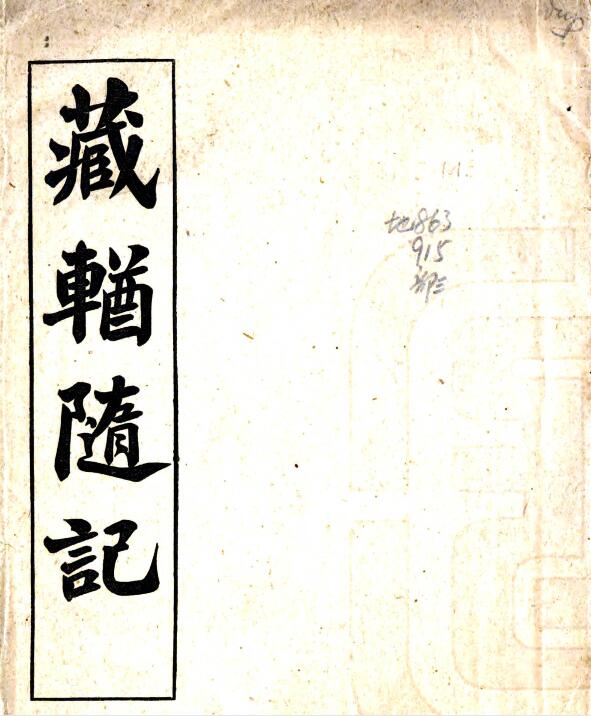 藏輶隨記
地863
915